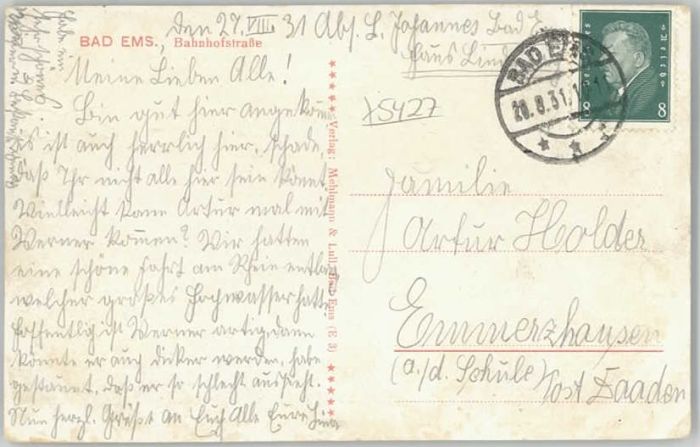 Den 27. VIII. 31 Abs. L. Johannes Bad E
Haus Lind
BAD EMS., Bahnhofstraße
Meine Lieben Alle!
Bin gut hier angekom
es ist auch herrlich hier, schade,
daß Ihr nicht alle hier sein könnt.
Vielleicht kann Artur mal mit
Werner kommen? Wir hatten
eine schöne Fahrt am Rhein entlang
welcher großes Hochwasser hatte
Hoffentlich ist Werner artig, dann
könnte er auch dicker werden, habe
gestaunt, daß er so schlecht aussieht.
Nun herzl. Grüße an Euch Alle Eure
Verlag: Mehlmann & Lull, Bad Ems (E 3)
BAD EMS
28.8.31
8 8
X5427
Familie
Artur Holder
Emmerzhausen
(a./d. Schule)
Post Daaden